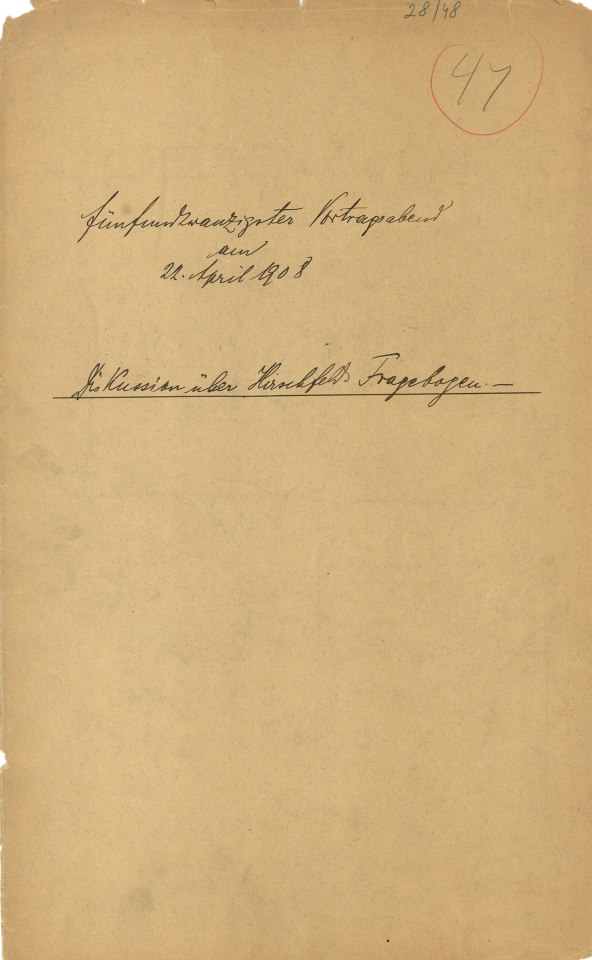 28/48
47
fünfundzwanzigster Vortragsabend
am
22. April 1908
Diskussion über Hirschfelds Fragebogen. —